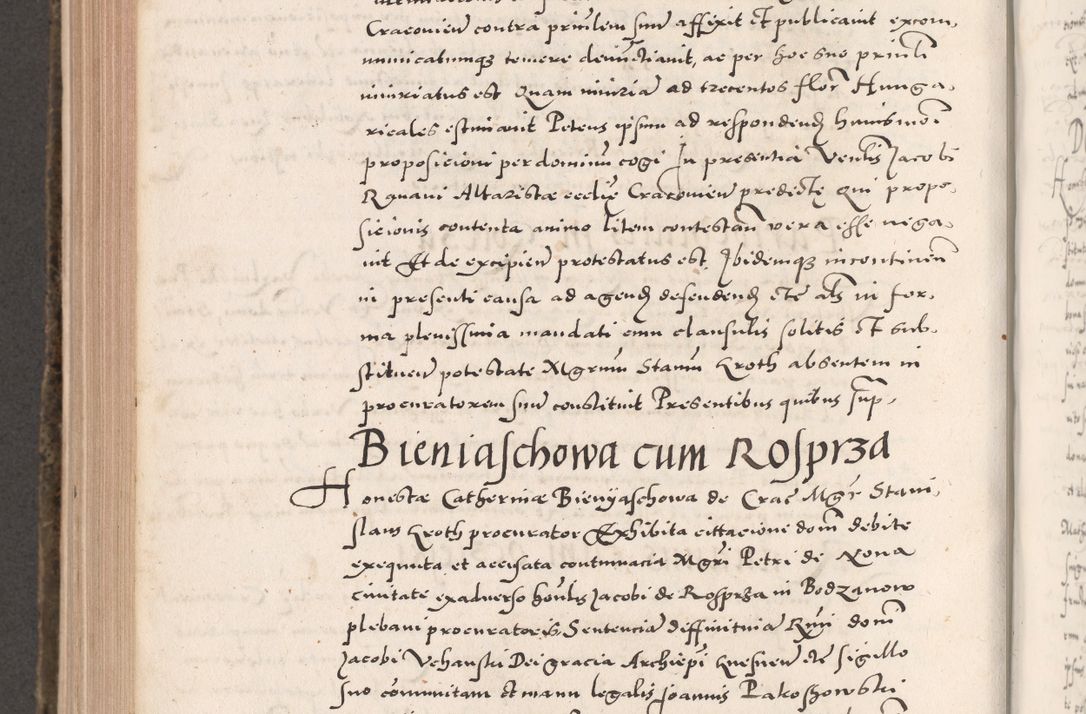 Cracovien contra privilem suu affixit et publicavit excom,
municatumqz temere denuntiavit, ac per hoc suo privilti
iniuriatus est Quam iniuria ad trecentos flor Hunga,
ricales estimavit Petens ipsum ad respondend huiusmoi
proposicioni per dominu cogi In presentia Venlis Jacobi
Ranavi Altaristæ ecclię Cracovien predictę Qui propo,
sicionis contenta animo litem contestan vera esse nega,
vit Et de excipien protestatus est, Ibidemqz incontinen
in presenti causa ad agend defendend etc als in for,
ma plenissima mandati cum clausulis solitis et sub,
stituen potestate Mgrum Stanu Kroth absentem in
procuratorem suu constituit Presentibus quibus sup,
Bieniaschowa cum Rosprza
Honestæ Catherinæ Bieniyaschowa de Crac Mgr Stani,
slaus Kroth procurator Exhibita cittacione dom debite
exequuta et accusata contumacia Mgri Petri de Xona
Civitate ex adverso honlis Jacobi de Rosprza in Bodzanow
plebani procuratoris, Sententia diffinitiva Rmi dom
Jacobi Vchanski Dei gracia Archiepi Gnesnen etc sigillo
suo comunitam et manu legalis Joannis Pakoszowski